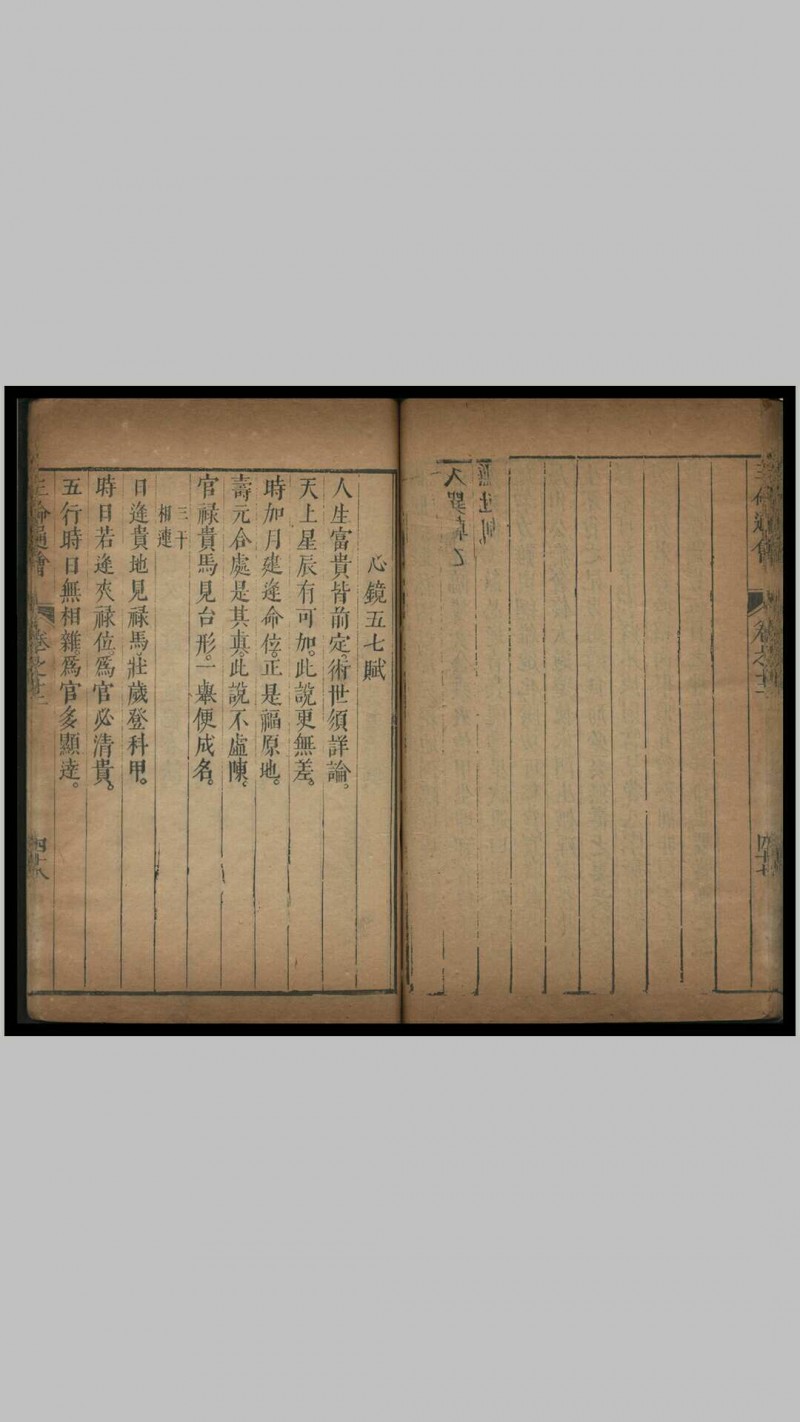 三命通會
卷之十一
四十七
心鏡五七賦
人生富貴皆前定。術世須詳論。
天上星辰有可加。此說更無差。
時加月建逢命位。正是福原地。
壽元合處是其真。此說不虛陳。
官祿貴馬見台形。一舉便成名。
三干
相連
日逢貴地見祿馬。壯歲登科甲。
時日若逢夾祿位。爲官必清貴。
五行時日無相雜。爲官多顯達。
三命通會
卷之十一
四十八